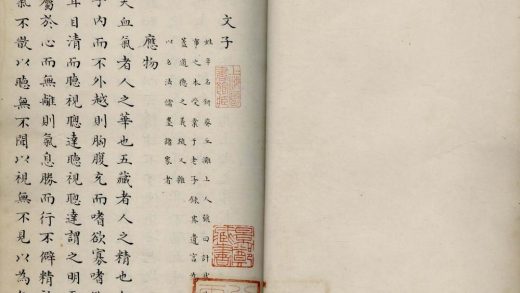 文子
姓辛名銒葵丘濮上人號曰計然
事之本受業于老子錄其遺言為
蓋道德之義疏人雜
以名法儒墨諸家者
應物
夫血氣者人之華也五藏者人之精也
乎內而不外越則胸腹充而嗜欲寡嗜
耳目清而聽視聰達聽視聰達謂之明
屬於心而無離則氣息勝而行不僻精
氣不散以聽無不聞以視無不見以為
景鄭藏書